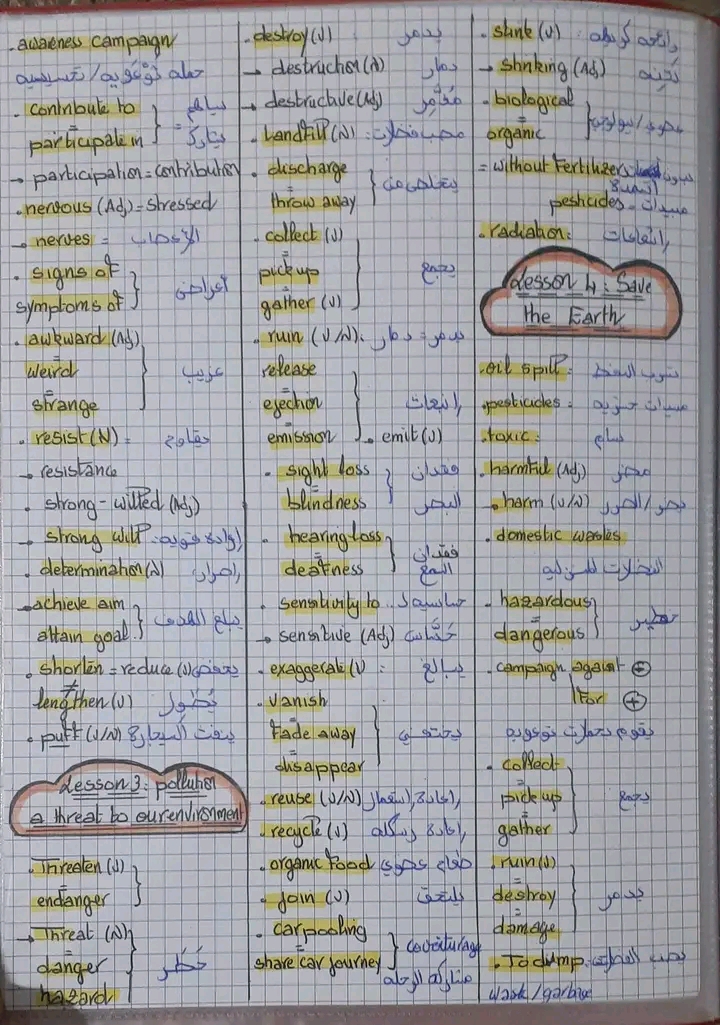 . awaeness campaign
حمله توعويه / تحسيسيه
. contribute to
=
participate in } يساهم = يشارك
→ participation = contribution
. nervous (Adj) = stressed
→ nerves = الأعصاب
. signs of
=
symptoms of } أعراض
. awkward (Adj)
=
weird
=
strange } غريب
. resist (N) = يقاوم
→ resistance
. strong-willed (Adj)
→ strong will : إرادة قويه
. determination (N) إصرار
→ achieve aim
attain goal } يبلغ الهدف
. shorten = reduce (v) يخفض
≠
lengthen (v) يُطول
. puff (v/N) ينفث السيجارة
Lesson 3: pollution
a threat to our environment
. Threaten (v)
=
endanger }
→ Threat (N)
=
danger
=
hazard } خطر
. destroy (v) يدمر
→ destruction (N) دمار
→ destructive (Adj) مُدمّر
. Landfill (N) : مصب فضلات
. discharge
=
throw away } يتخلص من
. collect (v)
=
pick up
=
gather (v) } يجمع
. ruin (v/N) : يدمر = دمار
release
=
ejection
=
emission } إنبعاث . emit (v)
. sight loss
=
blindness } فقدان البصر
. hearing loss
=
deafness } فقدان السمع
. sensitivity to حساسيه لـ
→ sensitive (Adj) حسّاس
. exaggerate (v) : يبالغ
. vanish
=
fade away
=
disappear } يختفي
. reuse (v/N) إعادة إستعمال
. recycle (v) إعادة رسكله
. organic food طعام عضوي
. join (v) يلتحق
. carpooling
=
share car journey } covoiturage
مشاركه الرحله
. stink (v) : رائحه كريهه
→ stinking (Adj) نَتِنه
. biological
=
organic } عضوي / بيولوجي
= without Fertilizers بدون أسمدة
pesticides = مبيدات
. radiation : إشعاعات
Lesson 4 : Save
the Earth
. oil spill : تسرب النفط
. pesticides : مبيدات حشريه
. toxic : سام
. harmful (Adj) مضر
→ harm (v/N) يضر / الضرر
. domestic wastes
الفضلات المنزليه
. hazardous
=
dangerous } خطير
. campaign against ⊖
For ⊕
يقوم بحملات توعويه
. collect
=
pick up
=
gather } يجمع
. ruin (v)
=
destroy
=
damage } يدمر
. To dump : يصب الفضلات
wast / garbage